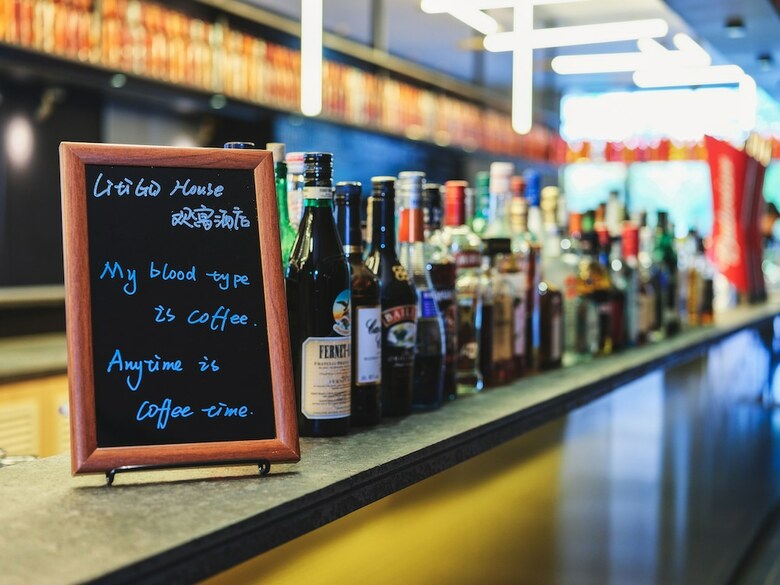 LitiGO House
观寓酒店
My blood type
is coffee.
Anytime is
Coffee time.
FERNET-B
BAILE